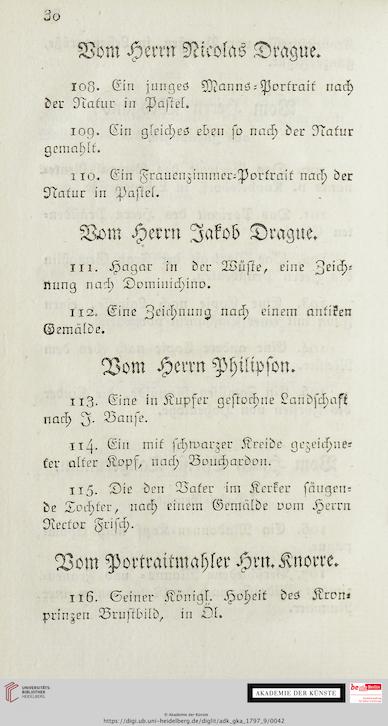 30
Vom Herrn Nicolas Drague.
108. Ein junges Manns-Portrait nach
der Natur in Pastel.
109. Ein gleiches eben so nach der Natur
gemahlt.
110. Ein Frauenzimmer-Portrait nach der
Natur in Pastel.
Vom Herrn Jakob Drague.
111. Hagar in der Wüste, eine Zeich-
nung nach Dominichino.
112. Eine Zeichnung nach einem antiken
Gemälde.
Vom Herrn Philipson.
113. Eine in Kupfer gestochne Landschaft
nach J. Bause.
114. Ein mit schwarzer Kreide gezeichne-
ter alter Kopf, nach Bouchardon.
115. Die den Vater im Kerker säugen-
de Tochter, nach einem Gemälde vom Herrn
Rector Frisch.
Vom Portraitmahler Hrn. Knorre.
116. Seiner Königl. Hoheit des Kron-
prinzen Brustbild, in Öl.
UNIVERSITÄTS-
BIBLIOTHEK
HEIDELBERG
AKADEMIE DER KÜNSTE
be Berlin
© Akademie der Künste
https://digi.ub.uni-heidelberg.de/diglit/adk_gka_1797_9/0042